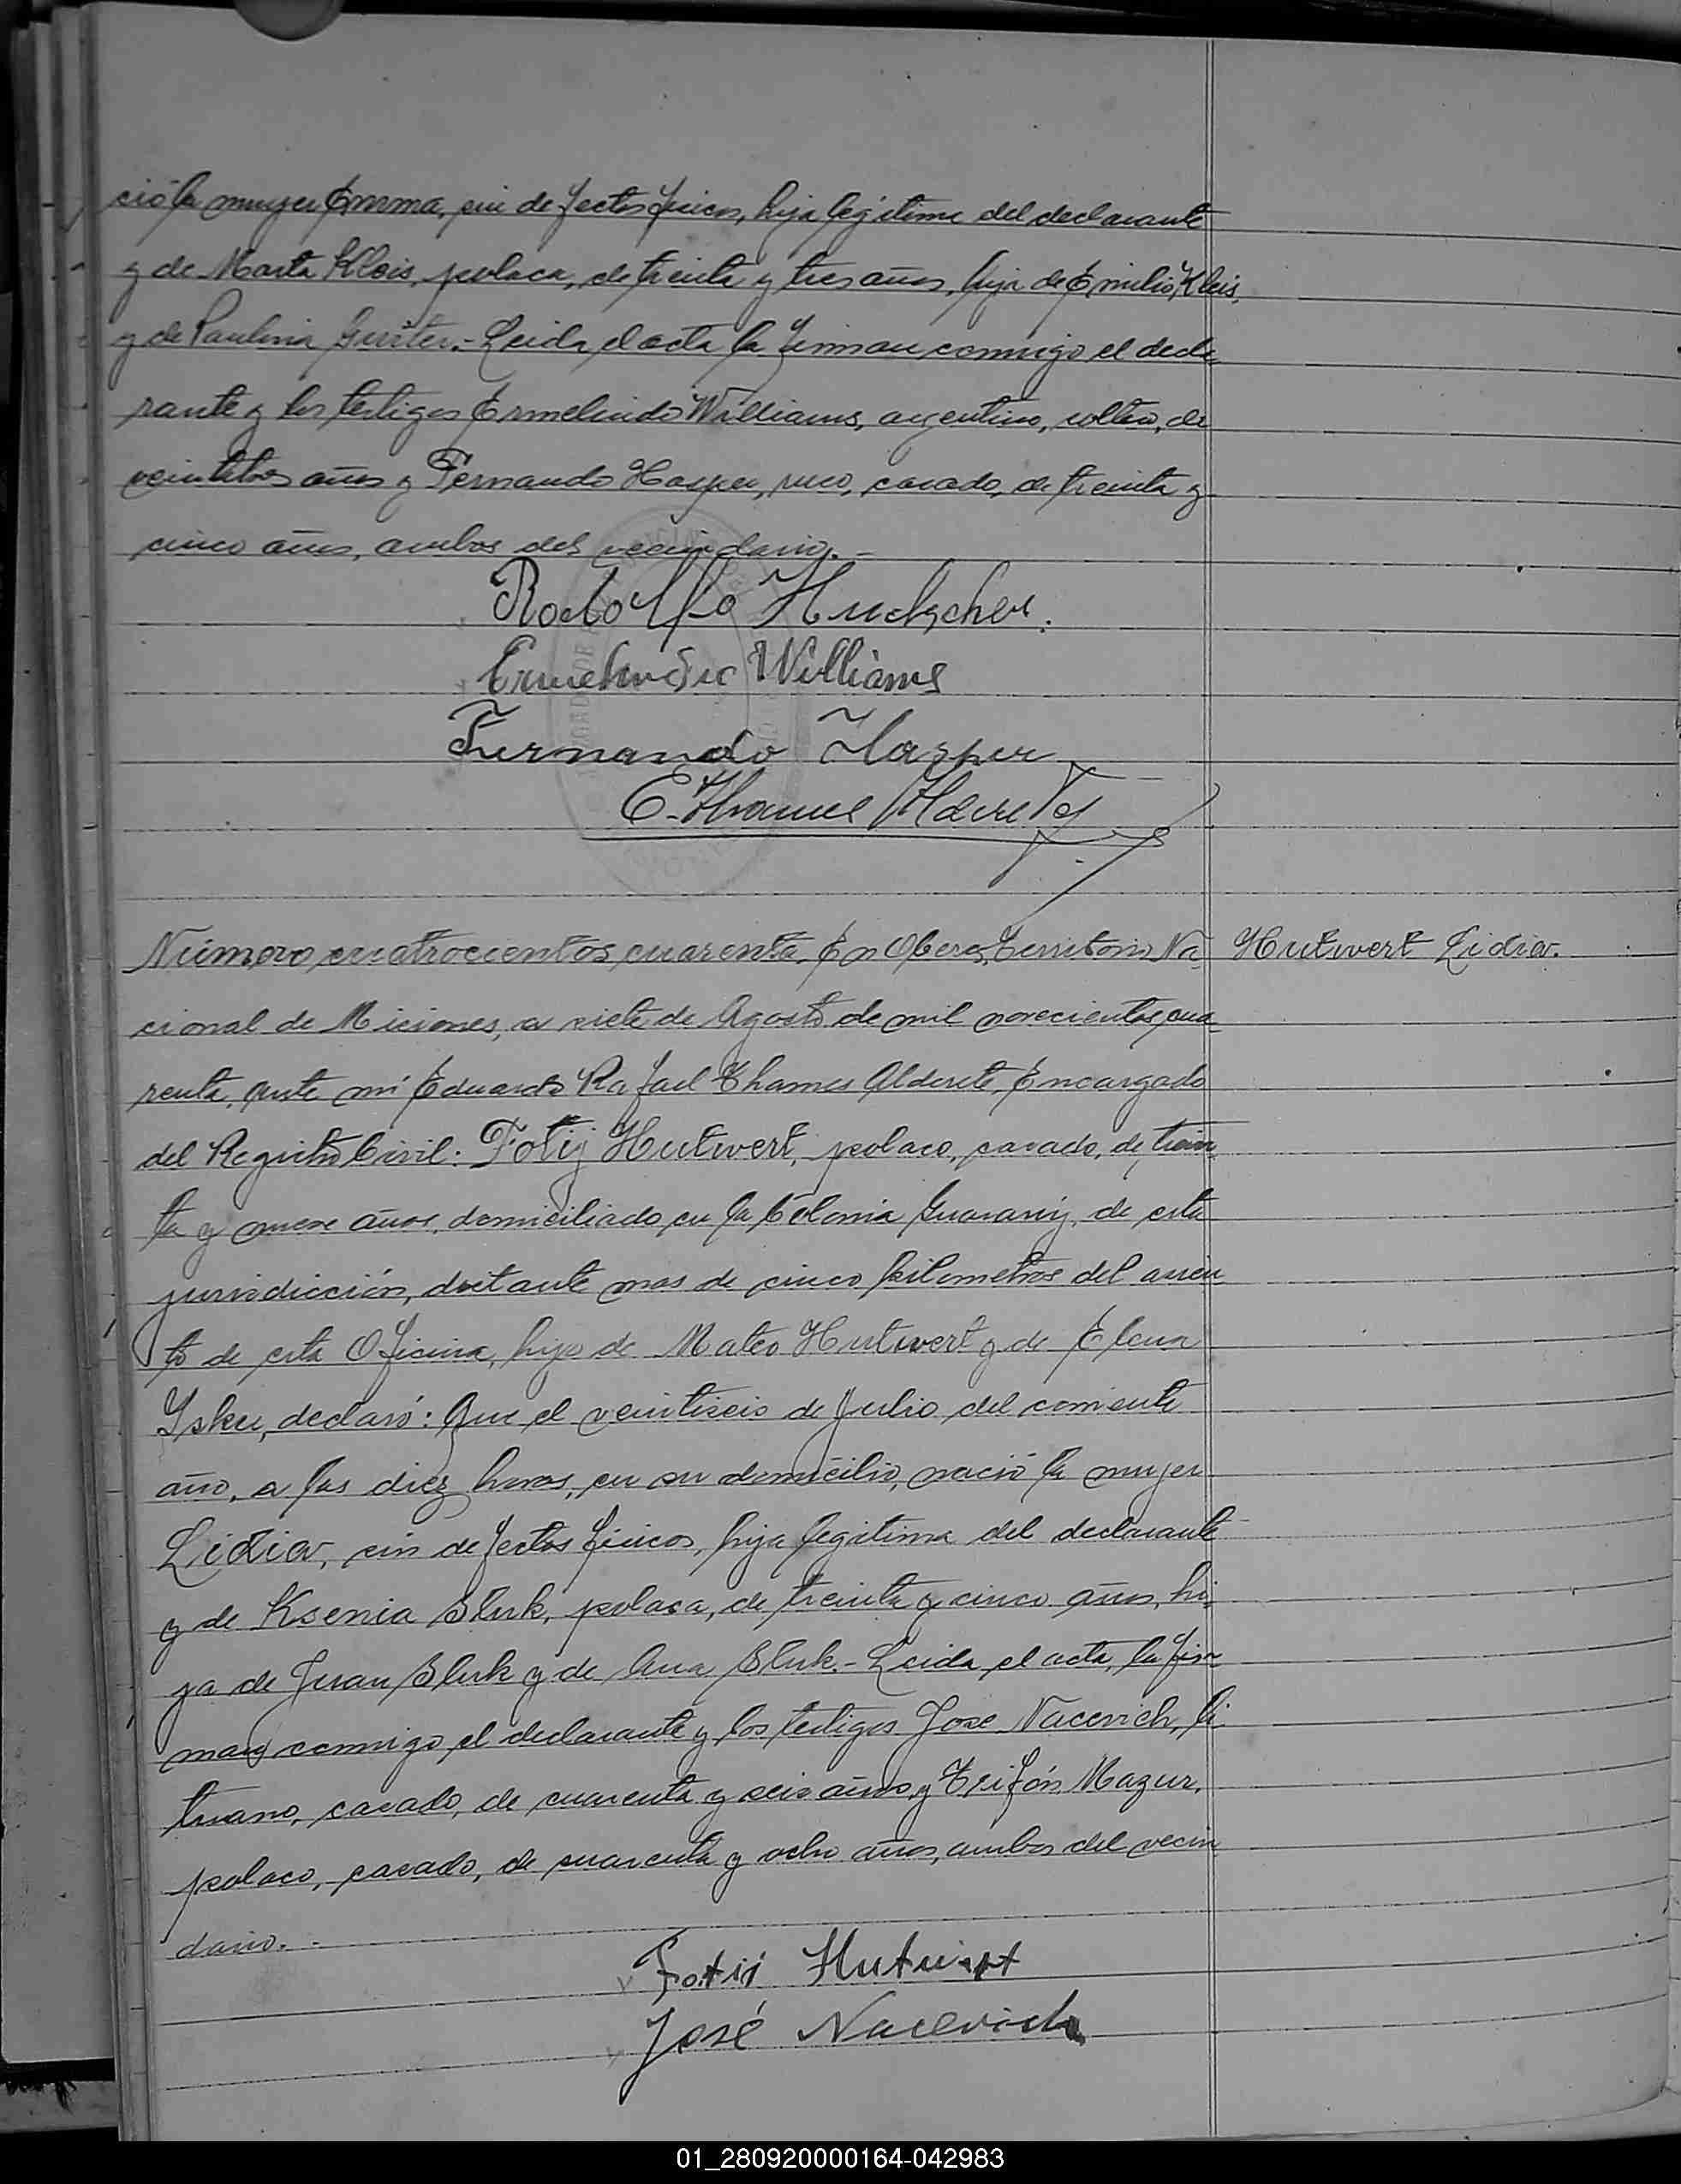 ció la mujer Emma, sin defectos físicos, hija legítima del declarante
y de Marta Kleis, polaca, de treinta y tres años, hija de Emilio Kleis,
y de Paulina.- Leida el acta la firman conmigo el decla
rante y los testigos Ermelindo Williams, argentino, soltero, de
años y Fernando Hasper, ruso, casado, de treinta y
cinco años, ambos del vecindario.-
Rodolfo
Ermelindo Williams
Fernando Hasper
E. Thames Alderete
Número cuatrocientos cuarenta. En Oberá, Territorio Na
Hutwert Lidia.
cional de Misiones, a siete de Agosto de mil novecientos cua
renta, ante mi Eduardo Rafael Thames Alderete, Encargado
del Registro Civil: Fotij Hutwert, polaco, casado, de trein
ta y nueve años, domiciliado en la Colonia Guaraní, de esta
jurisdicción, distante mas de cinco kilometros del asien
to de esta Oficina, hijo de Mateo Hutwert y de Elena
declaró: Que el veintiseis de Julio del corriente
año, a las diez horas, en su domicilio, nació la mujer
Lidia, sin defectos físicos, hija legítima del declarante
y de Ksenia Sluk, polaca, de treinta y cinco años, hi-
ja de Juan Sluk y de Ana Sluk.- Leida el acta, la fir
man conmigo el declarante y los testigos José Nacevich, li
tuano, casado, de cuarenta y seis años y Trifón Mazur,
polaco, casado, de cuarenta y ocho años, ambos del vecin
dario.-
Fotij Hutwert
José Nacevich
01_280920000164-042983